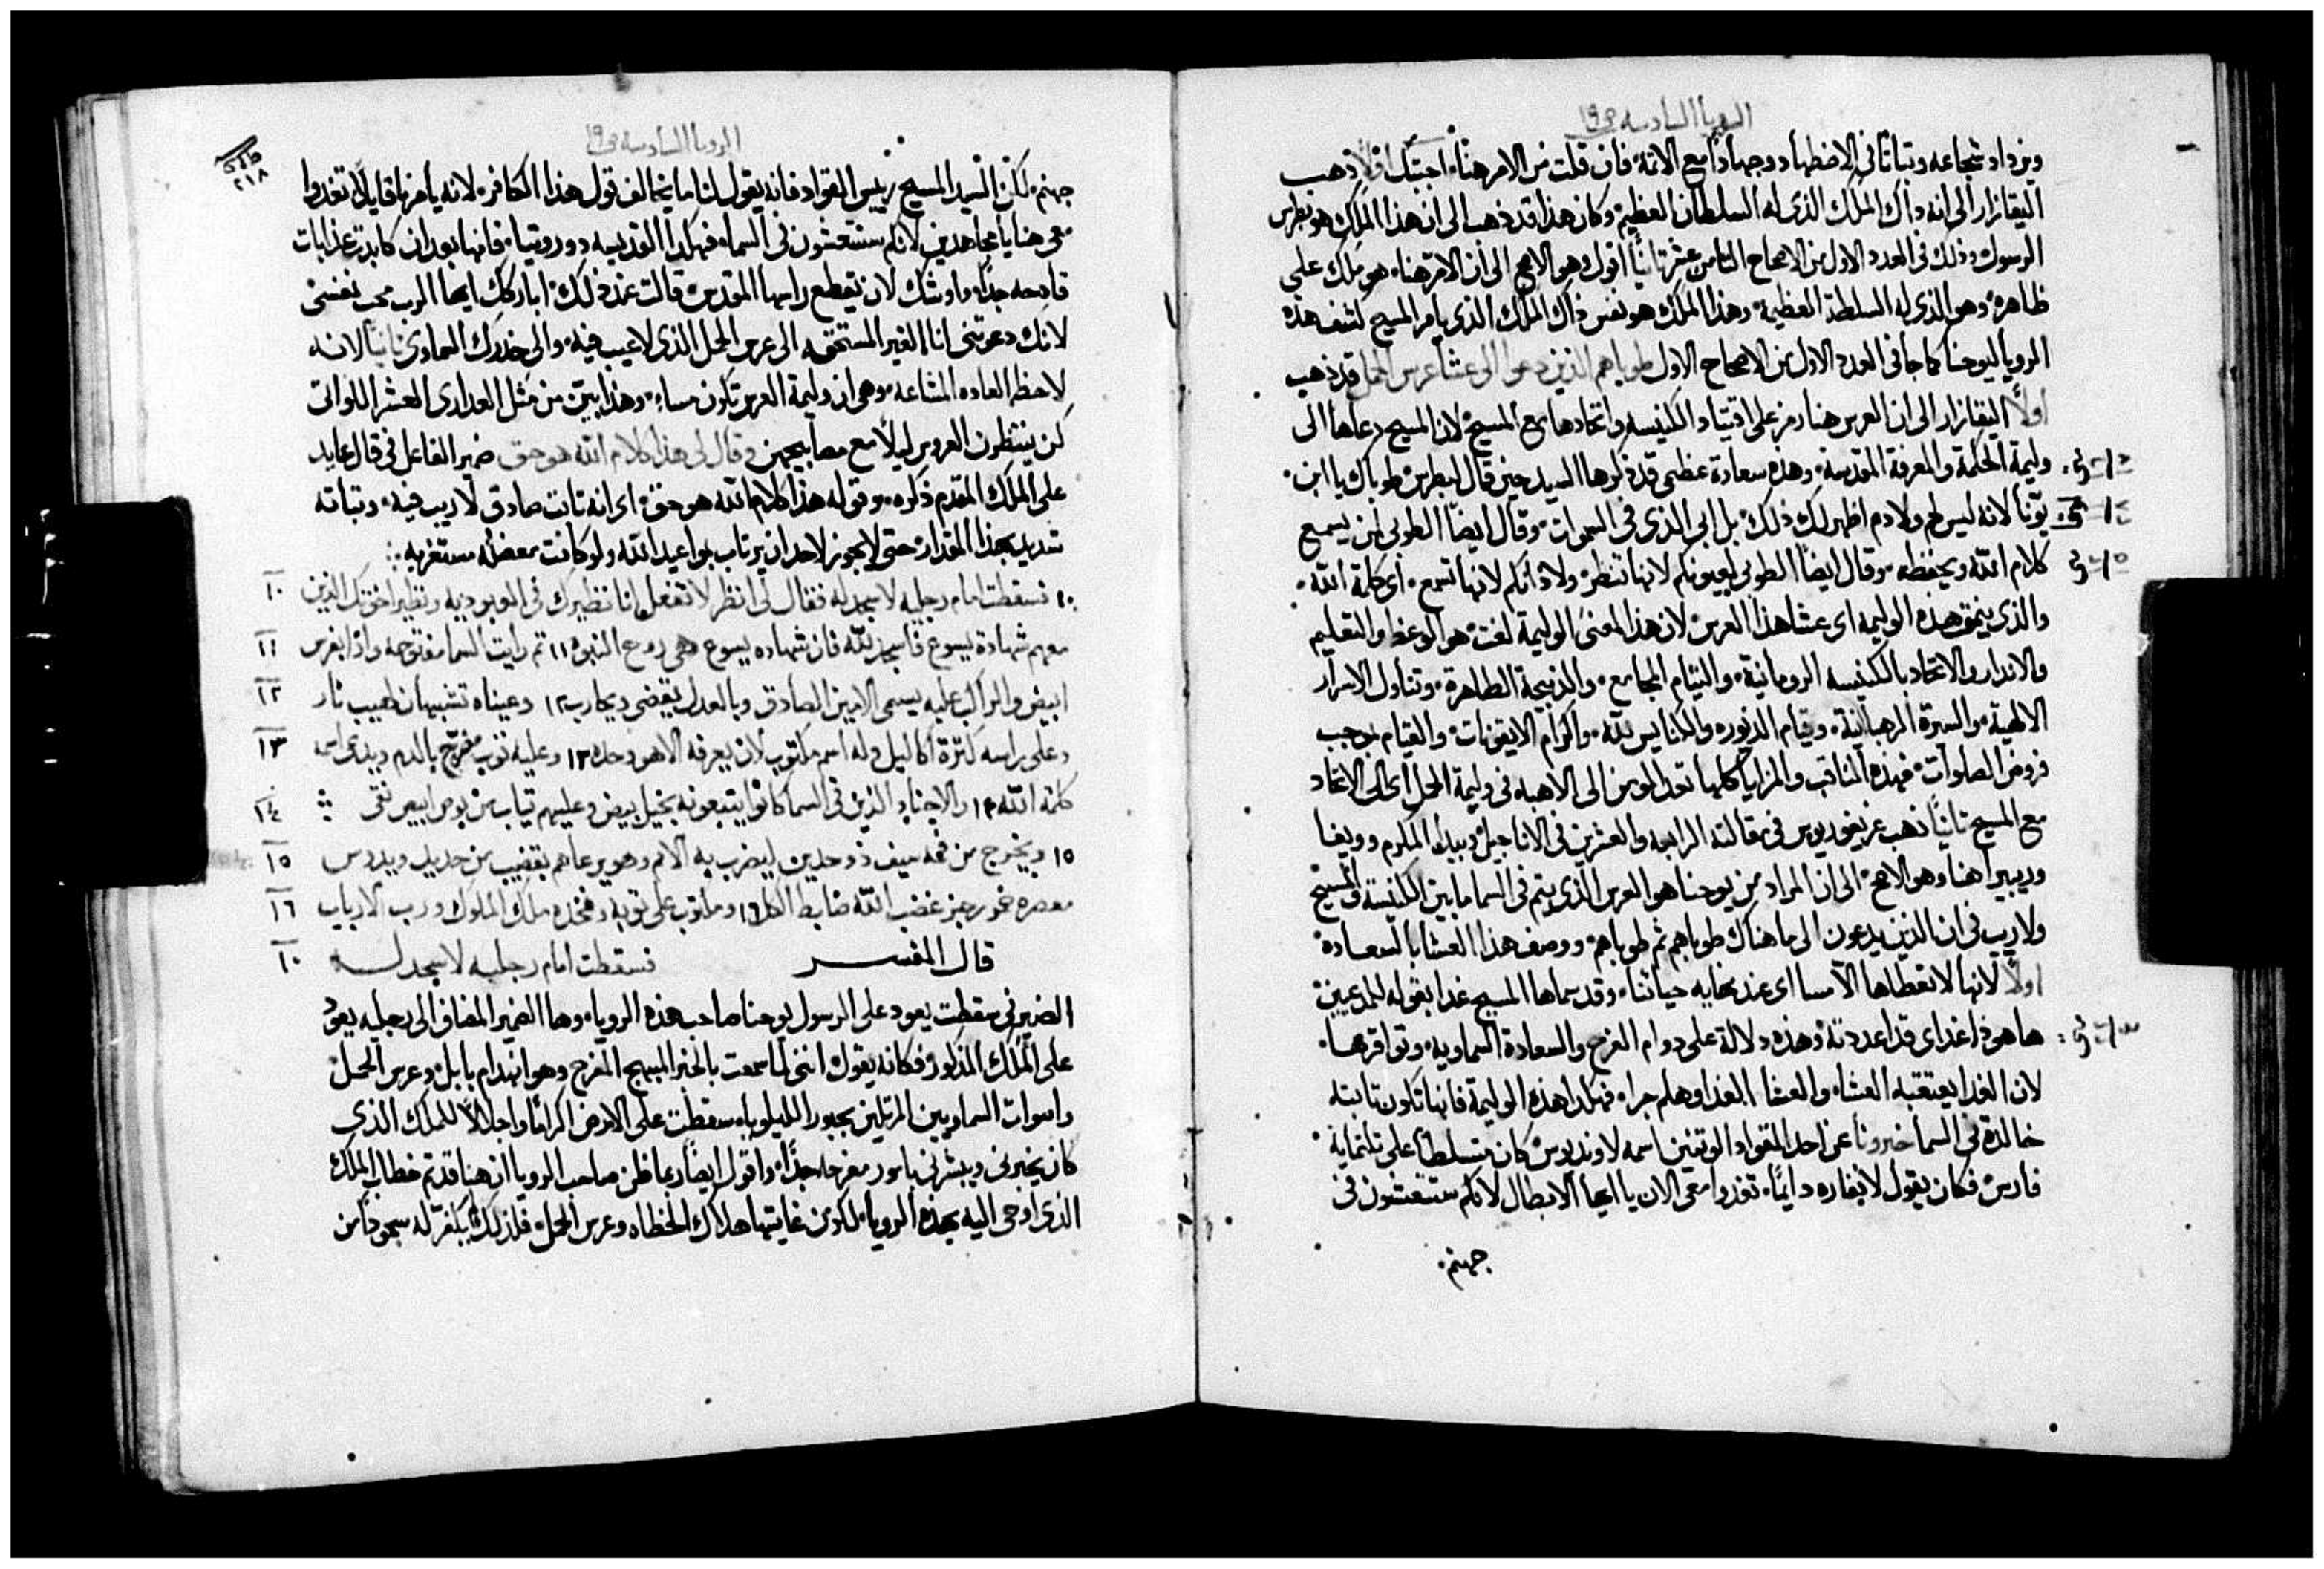 الرويا السادسه ص١٩
ويزداد شجاعه وثباتًا في الاضطهاد وجهادًا مع الائمه فان قلت من الامر هنا اجبتك اولاً ذهب
اليقازار الى انه ذاك الملك الذي له السلطان العظيم وكان هذا قد ذهب الى ان هذا الملك هو بطرس
الرسول وذلك في العدد الاول من الاصحاح الثامن عشر ثانيًا اقول وهو الاصح الى ان الامر هنا هو ملك على
ظاهره وهو الذي له السلطة العظيمة وهذا الملك هو نفس ذاك الملك الذي يامر المسيح لكشف هذه
الرويا ليوحنا كما جا في العدد الاول من الاصحاح الاول طوباهم الذين دعوا الى عشا عرس الحمل قد ذهب
اولاً اليقازار الى ان العرس هنا رمز على اقتياد الكنيسه واتحادها مع المسيح لان المسيح دعاها الى
وليمة الحكمة والمعرفة المقدسة وهذه سعادة عظمى قد ذكرها السيد حين قال لبطرس طوباك يا ابن
يونا لانه ليس لحم ولا دم اظهر لك ذلك بل ابي الذي في السموات وقال ايضًا الطوبى لمن يسمع
كلام الله ويحفظه وقال ايضًا الطوبى لعيونكم لانها تنظر ولاذانكم لانها تسمع اي كلمة الله
والذي ينمق هذه الوليمه اي عشا هذا العرس لان هذا المعنى الوليمة لغت هو الوعظ والتعليم
والانذار والاتحاد بالكنيسه الرومانية والتيام المجامع والذبيحة الطاهرة وتناول الاسرار
الالهية والسيرة الرهبانية وقيام الديوره والكنايس لله واكرام الايقونات والقيام بوجب
فروض الصلوات فهذه المناقب والمزايا كلها تعد المومن الى الاهبه في وليمة الحمل اي الى الاتحاد
مع المسيح ثانيًا ذهب غريغوريوس في مقالته الرابعه والعشرين في الاناجيل وبيدا المكرم وويغا
وريبيرا هنا وهو الاصح الى ان المراد من يوحنا هو العرس الذي يتم في السما ما بين الكنيسة والمسيح
ولا ريب في ان الذين يدعون الى ما هناك طوباهم ثم طوباهم ووصف هذا العشا بالسعادة
اولاً لانها لا تعطاها الا مسا اي عند نهايه حياتنا وقد سماها المسيح غدا بقوله للمدعيين
ها هوذا غداي قد اعددته وهذه دلالة على دوام الفرح والسعادة السماويه وتوافرها
لان الغدا يعتقبه العشا والعشا الغدا وهلم جرا فهكذا هذه الوليمة فانها تكون ثابته
خالدة في السما خبرونا عن احد القواد الوثنين اسمه لاونديوس كان متسلطًا على ثلثمايه
فارس فكان يقول لانفاره دايمًا تغدوا معي الان يا ايها الابطال لانكم ستتعشون في
جهنم
الرويا السادسه ص١٩
٢١٨
جهنم لكن السيد المسيح رييس القواد فانه يقول لنا ما يخالف قول هذا الكافر لانه يامرنا قايلاً تغدوا
معي هنا يا مجاهدين لانكم ستتعشون في السما فهكذا القديسه دوروتيا فانها بعد ان كابدت عذابات
فادحه جدًا واوشك لان يقطع راسها المقدس قالت عند ذلك اباركك ايها الرب محب نفسي
لانك دعوتني انا الغير المستحقه الى عرس الحمل الذي لا عيب فيه والى خدرك السماوي ثانيًا لانه
لاحظ العاده المشاعه وهي ان وليمة العرس تكون مساء وهذا يبين من مثل العذارى العشر اللواتى
كن ينتظرون العروس ليلاً مع مصابيحهن وقال لي هذا كلام الله هو حق ضمير الفاعل في قال عايد
على الملك المقدم ذكره وقوله هذا كلام الله هو حق اي انه ثابت صادق لا ريب فيه وثباته
شديد بهذا المقدار حتى لا يجوز لاحد ان يرتاب بمواعيد الله ولو كانت معضله مستغربه
١٠ فسقطت امام رجليه لاسجد له فقال لي انظر لا تفعل انا نظيرك في العبوديه ونظير اخوتك الذين ١٠
معهم شهادة يسوع فاسجد لله فان شهاده يسوع هي روح النبوه ١١ ثم رايت السما مفتوحه واذا بفرس ١١
ابيض والراكب عليه يسمى الامين الصادق وبالعدل يقضي ويحارب ١٢ وعيناه تشبيهان لهيب نار ١٢
وعلى راسه كثرة اكاليل وله اسم مكتوب لان يعرفه الا هو وحده ١٣ وعليه ثوب مضرج بالدم ويدعى اسمه ١٣
كلمة الله ١٤ والاجناد الذين في السما كانوا يتبعونه بخيل بيض وعليهم ثياب من بوص ابيض نقي ١٤
١٥ ويخرج من فمه سيف ذو حدين ليضرب به الامم وهو يرعاهم بقضيب من حديد ويدوس ١٥
معصره خمر رجز غضب الله ضابط الكل ١٦ ومكتوب على ثوبه وفخده ملك الملوك ورب الارباب ١٦
قال المفسر فسقطت امام رجليه لاسجد له ١٠
الضمير في سقطت يعود على الرسول يوحنا صاحب هذه الرويا وها الضمير المضاف الى رجليه يعود
على الملك المذكور فكانه يقول انني لما سمعت بالخبر المبهج المفرح وهو انهدام بابل وعرس الحمل
واصوات السماويين المرتلين بحبور الليلويا سقطت على الارض اكرامًا واجلالاً للملك الذي
كان يخبرني ويبشرني بامور مفرحه جدًا واقول ايضًا ربما ظن صاحب الرويا ان هنا قد تم خطاب الملك
الذي اوحى اليه بهذه الرويا لكون غايتها هلاك الخطاه وعرس الحمل فلذلك يكفر له سجودًا من